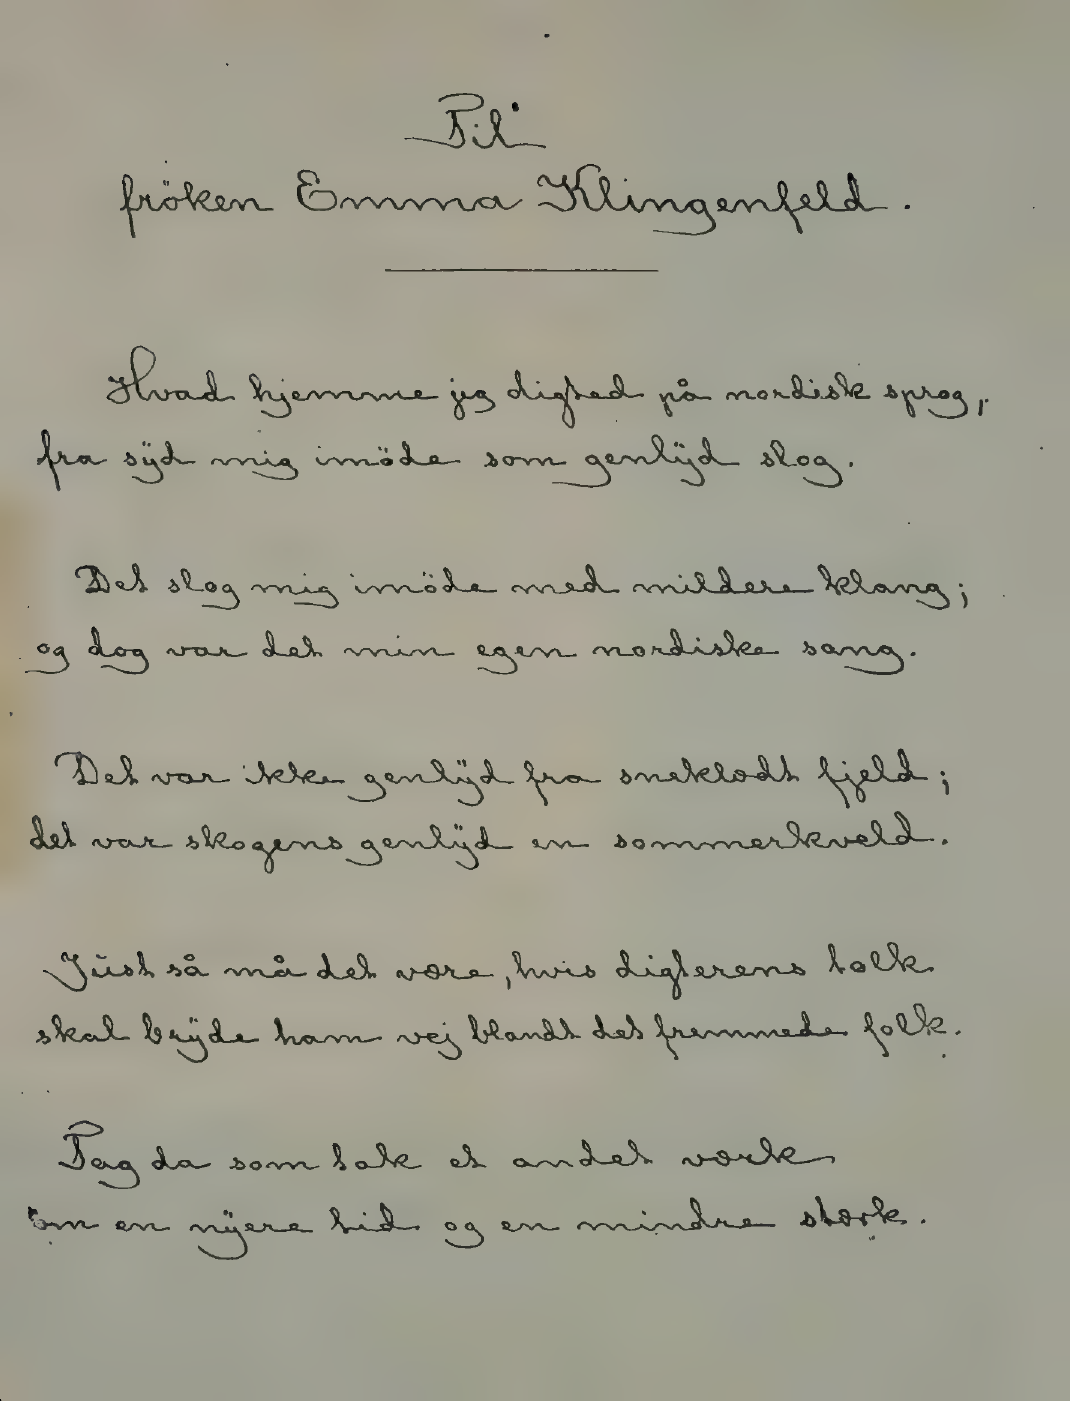 Til
fröken Emma Klingenfeld.
Hvad hjemme jeg digted på nordisk sprog,
fra sÿd mig imöde som genlÿd slog.
Det slog mig imöde med mildere klang;
og dog var det min egen nordiske sang.
Det var ikke genlÿd fra sneklædt fjeld;
det var skogens genlÿd en sommerkveld.
Just så må det være, hvis digterens tolk
skal brÿde ham vej blandt det fremmede folk.
Tag da som tak et andet værk
om en nÿere tid og en mindre stærk.